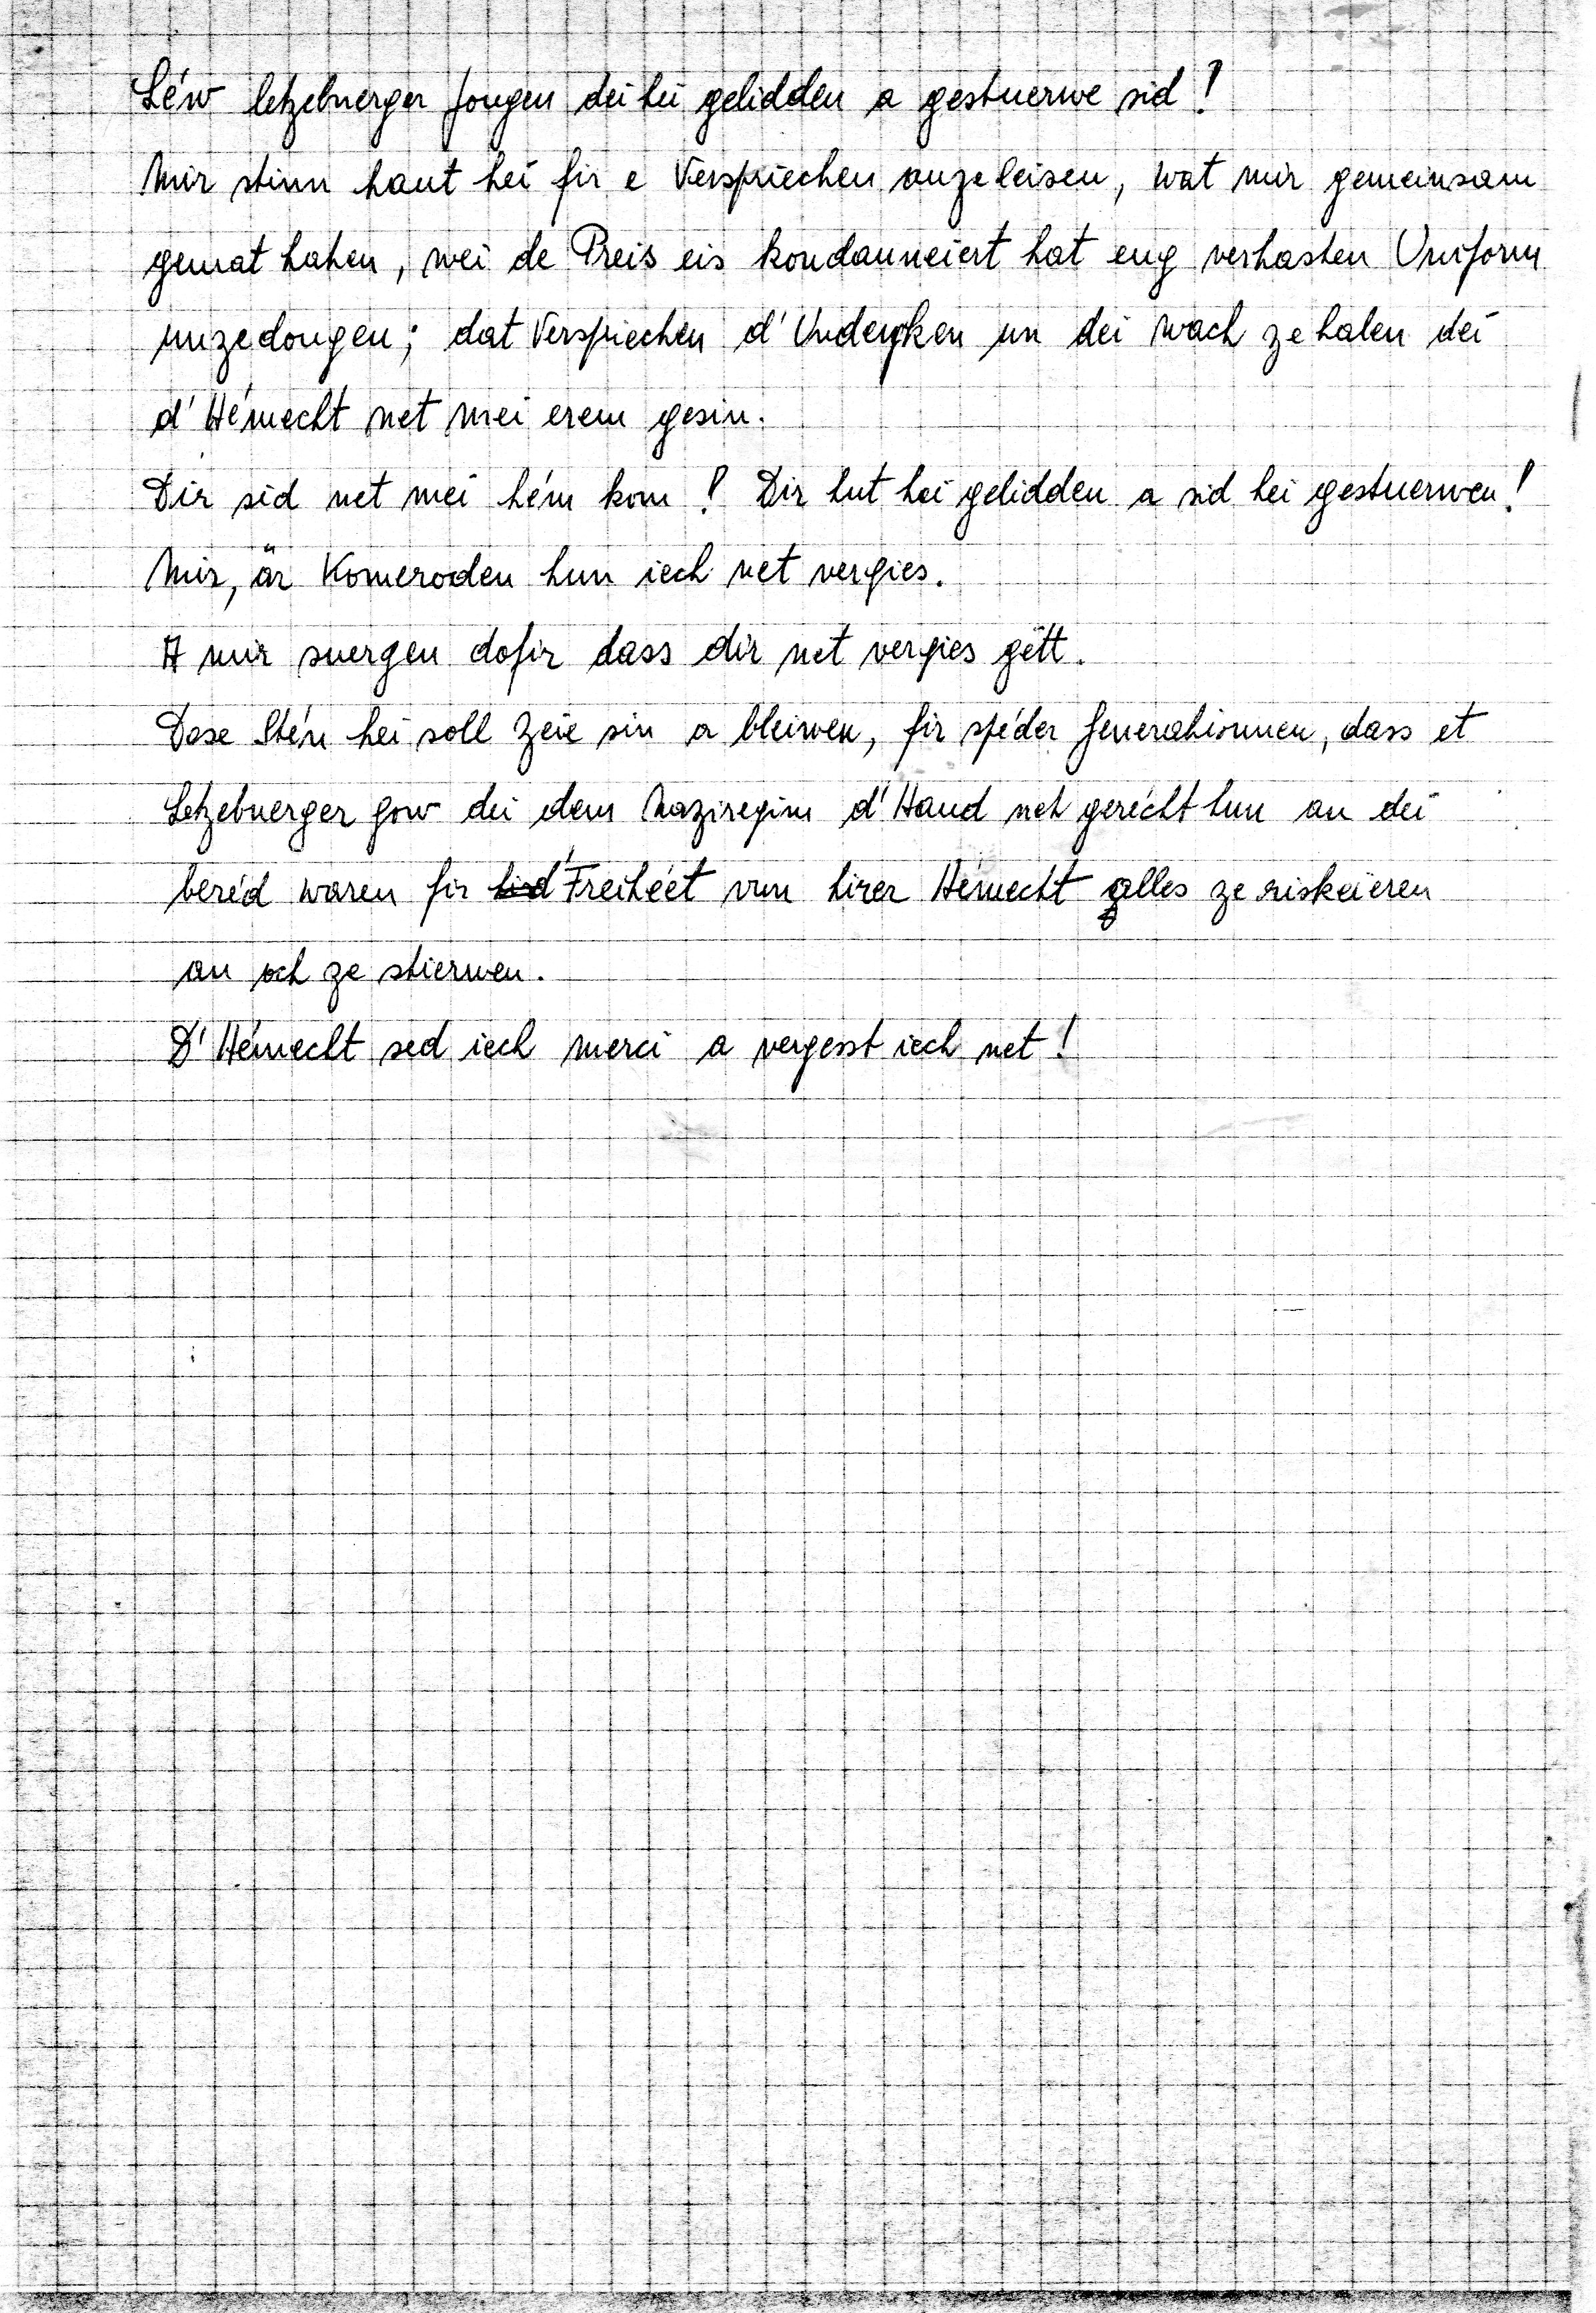 Léw letzebuerger Jongen dei hei gelidden a gestuerwe sid!
Mir stinn haut hei fir e Verspriechen anzeleisen, wat mir gemeinsam
gemat haben, wei de Preis eis kondanneiert hat eng verhasten Uniform
unzedongen; dat Verspriechen d'Undenken un dei wach ze halen dei
d'Hémecht net mei erem gesin.
Dir sid net mei hém kom! Dir hut hei gelidden a sid hei gestuerwen!
Mir, är Komeroden hun iech net vergies.
A mir suergen dofir dass dir net vergies gëtt.
Dese Stén hei soll Zeie sin a bleiwen, fir spéder Generatiounen, dass et
Letzebuerger gow dei dem Naziregim d'Hand net gerécht hun an dei
beréd waren fir d'Freihéet vun hirer Hémecht alles ze riskeieren
an och ze stierwen.
D'Hémecht sed iech merci a vergesst iech net!